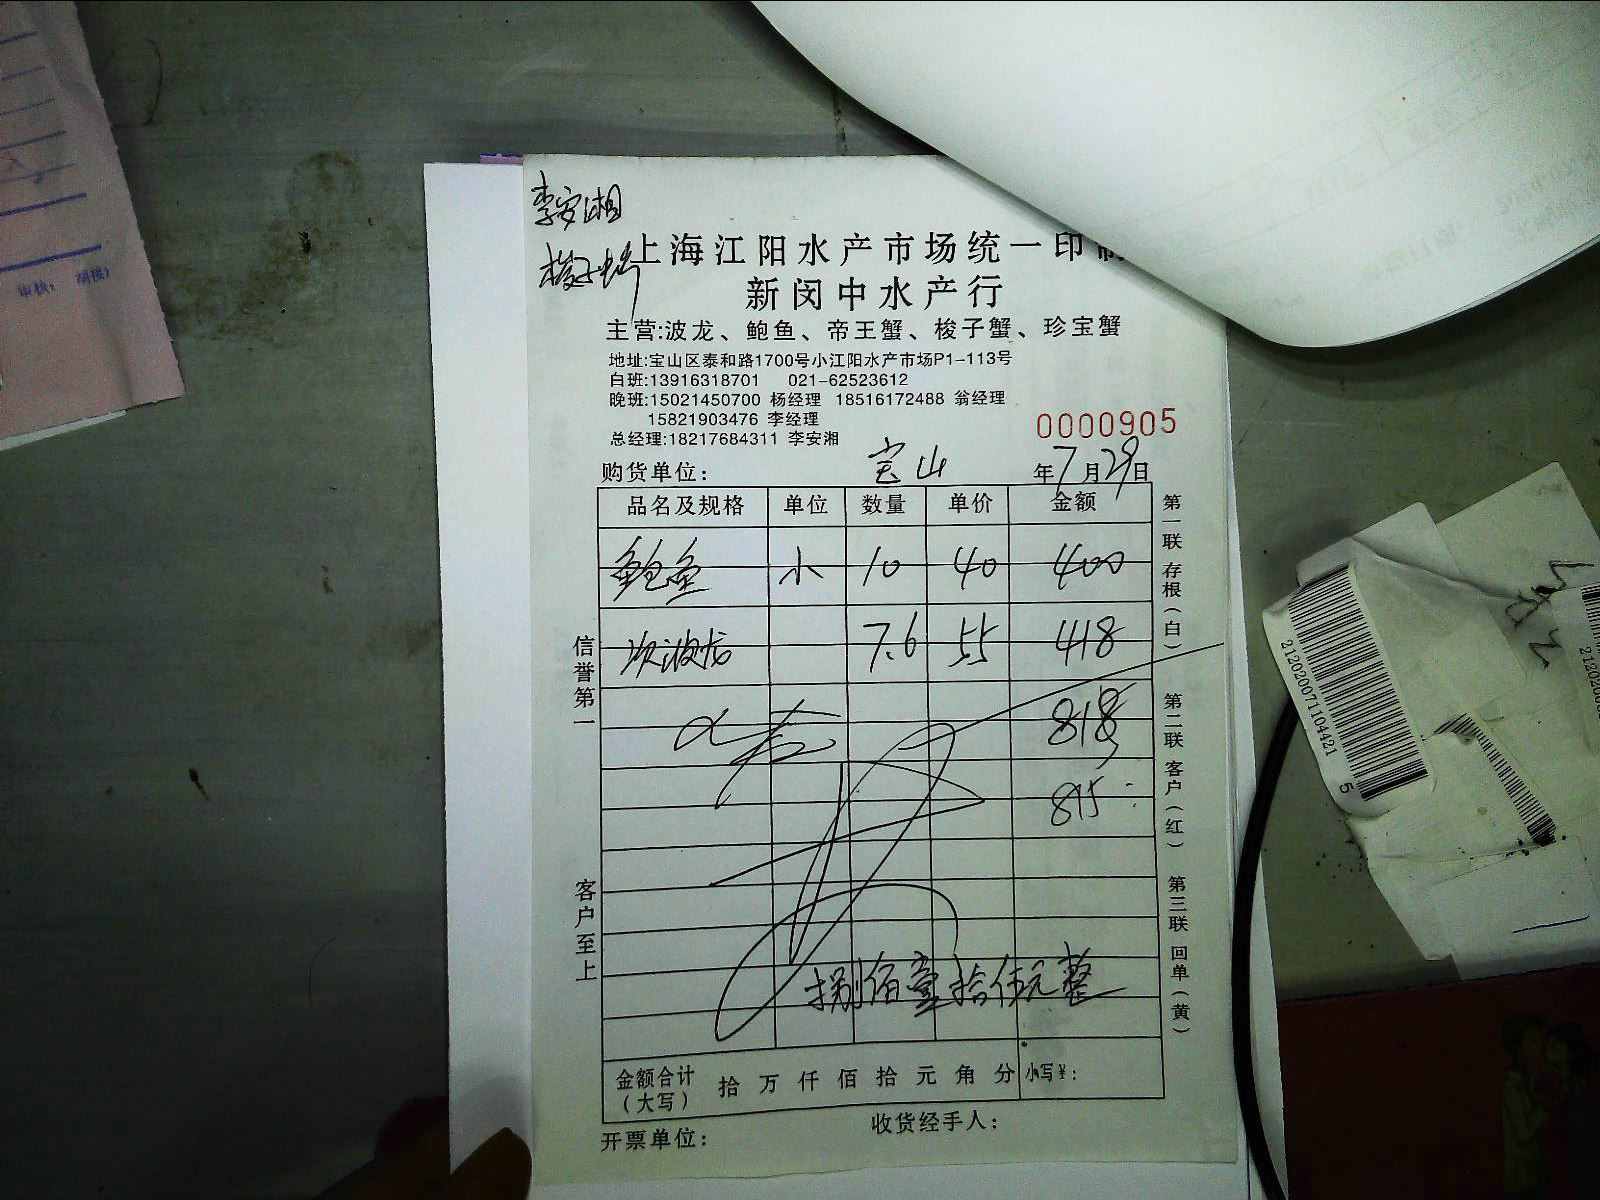 李安湘
梭子蟹
上海江阳水产市场统一印制
新闵中水产行
主营:波龙、鲍鱼、帝王蟹、梭子蟹、珍宝蟹
地址:宝山区泰和路1700号小江阳水产市场P1-113号
白班:13916318701 021-62523612
晚班:15021450700 杨经理 18516172488 翁经理
15821903476 李经理
总经理:18217684311 李安湘
0000905
购货单位: 宝山 年7月29日
品名及规格 单位 数量 单价 金额
鲍鱼 小 10 40 400
次波龙 7.6 55 418
818
815
捌佰壹拾伍元整
金额合计(大写) 拾 万 仟 佰 拾 元 角 分 小写¥:
开票单位: 收货经手人:
信誉第一
客户至上
第一联 存根(白)
第二联 客户(红)
第三联 回单(黄)
审核: 胡接)
2120200711044215